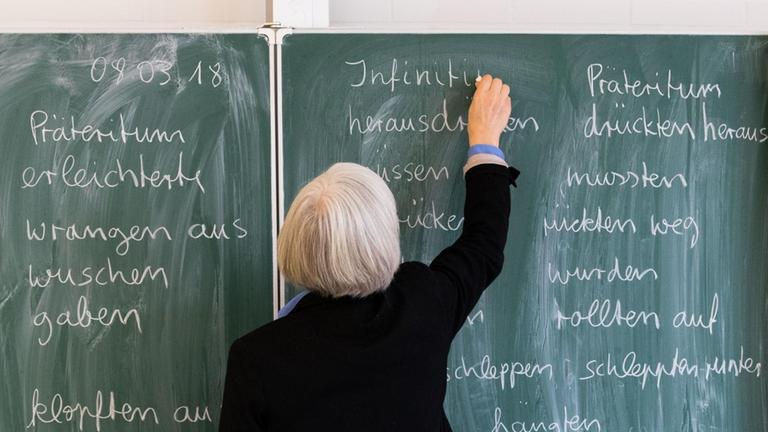 09.03.18
Präteritum
erleichterte
wrangen aus
wuschen
gaben
klopften au
Infiniti
herausdrücken
ussen
rücke
schleppen
Präteritum
drückten heraus
mussten
rückten weg
wurden
rollten auf
schleppten runter
hängten